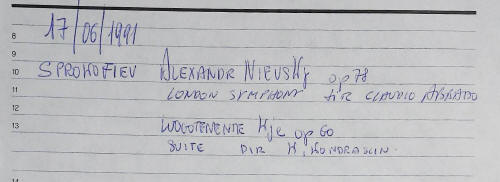 17/06/1991
8
9
10 SPROKOFIEV ALEXANDR NIEVSKY op 78
11 LONDON SYMPHONY DIR CLAUDIO ABBADO
12
13 LUOGOTENENTE Kje op 60
SUITE DIR K. KONDRASCIN.